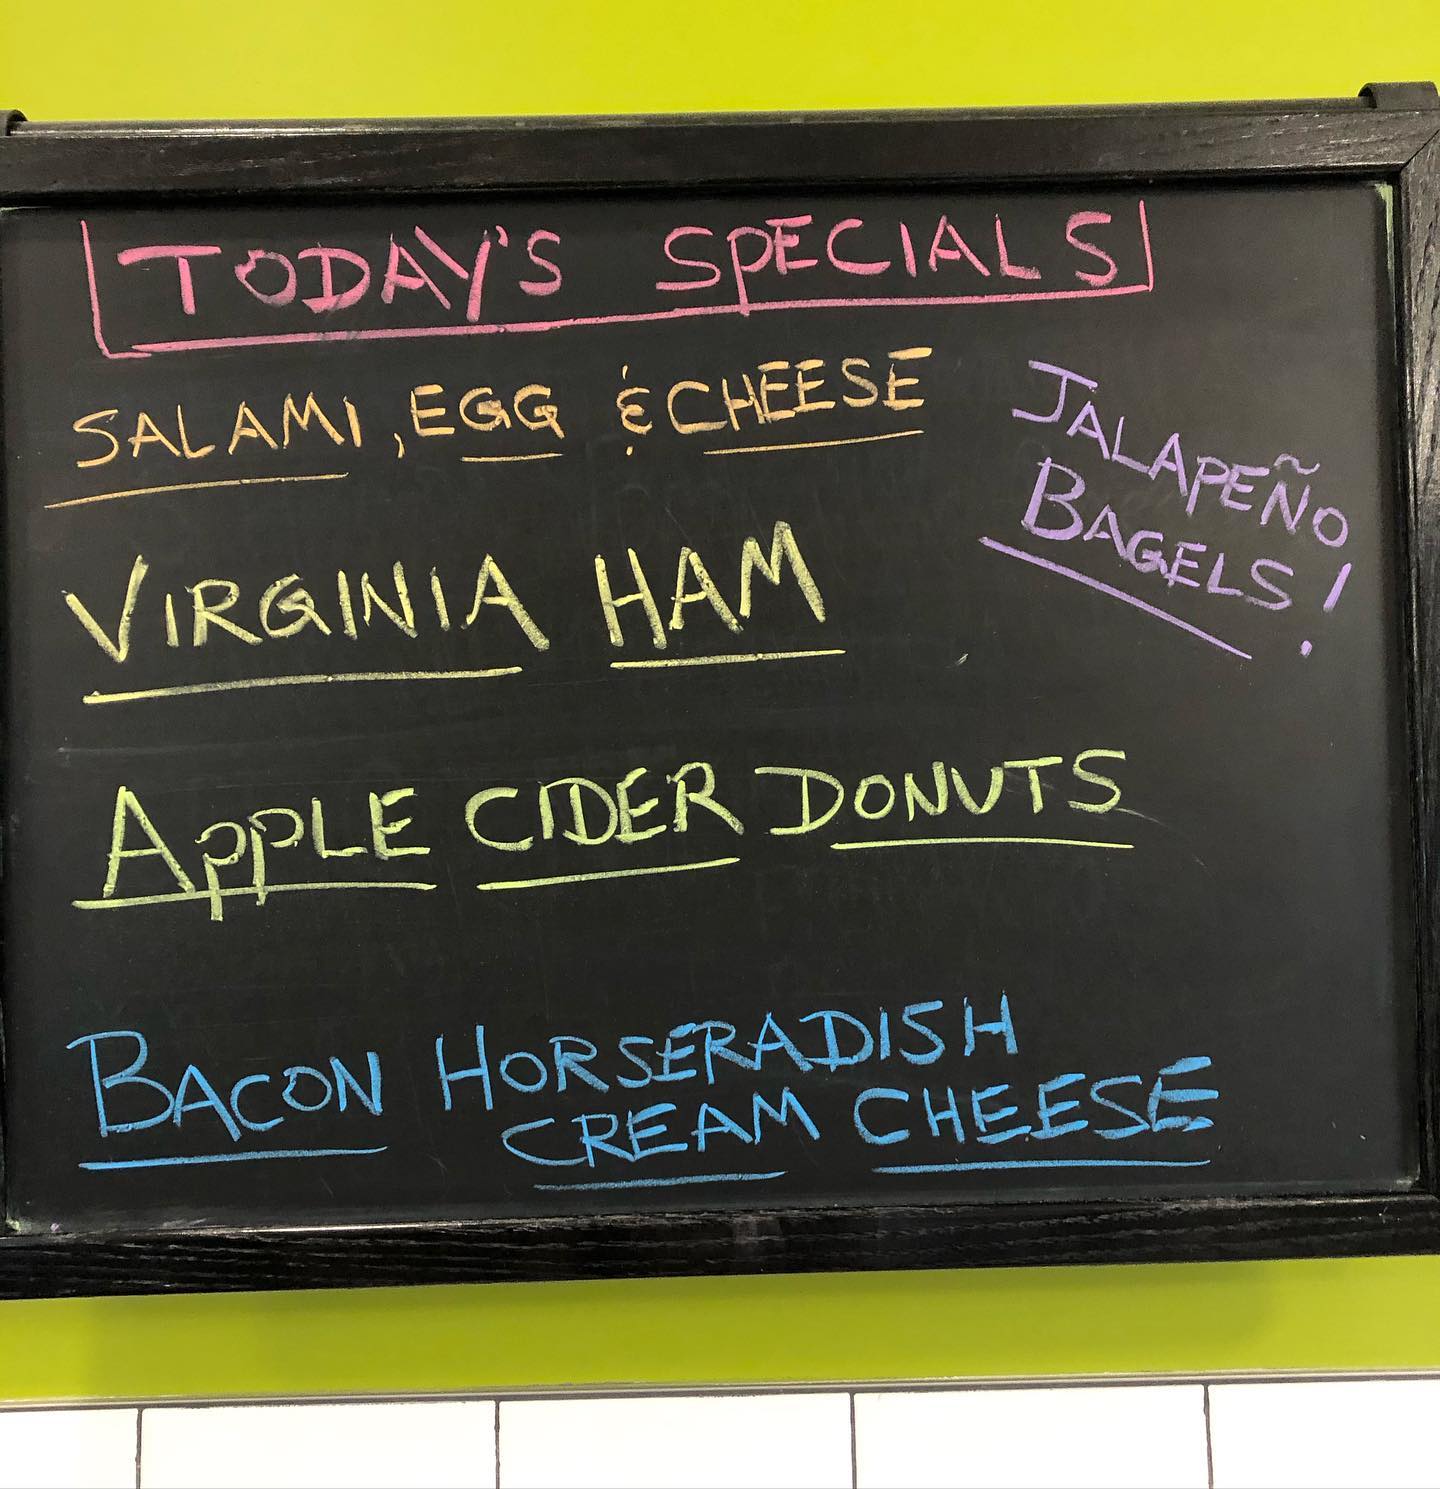 TODAY'S SPECIALS
SALAMI, EGG & CHEESE
JALAPEÑO
BAGELS!
VIRGINIA HAM
APPLE CIDER DONUTS
BACON HORSERADISH
CREAM CHEESE